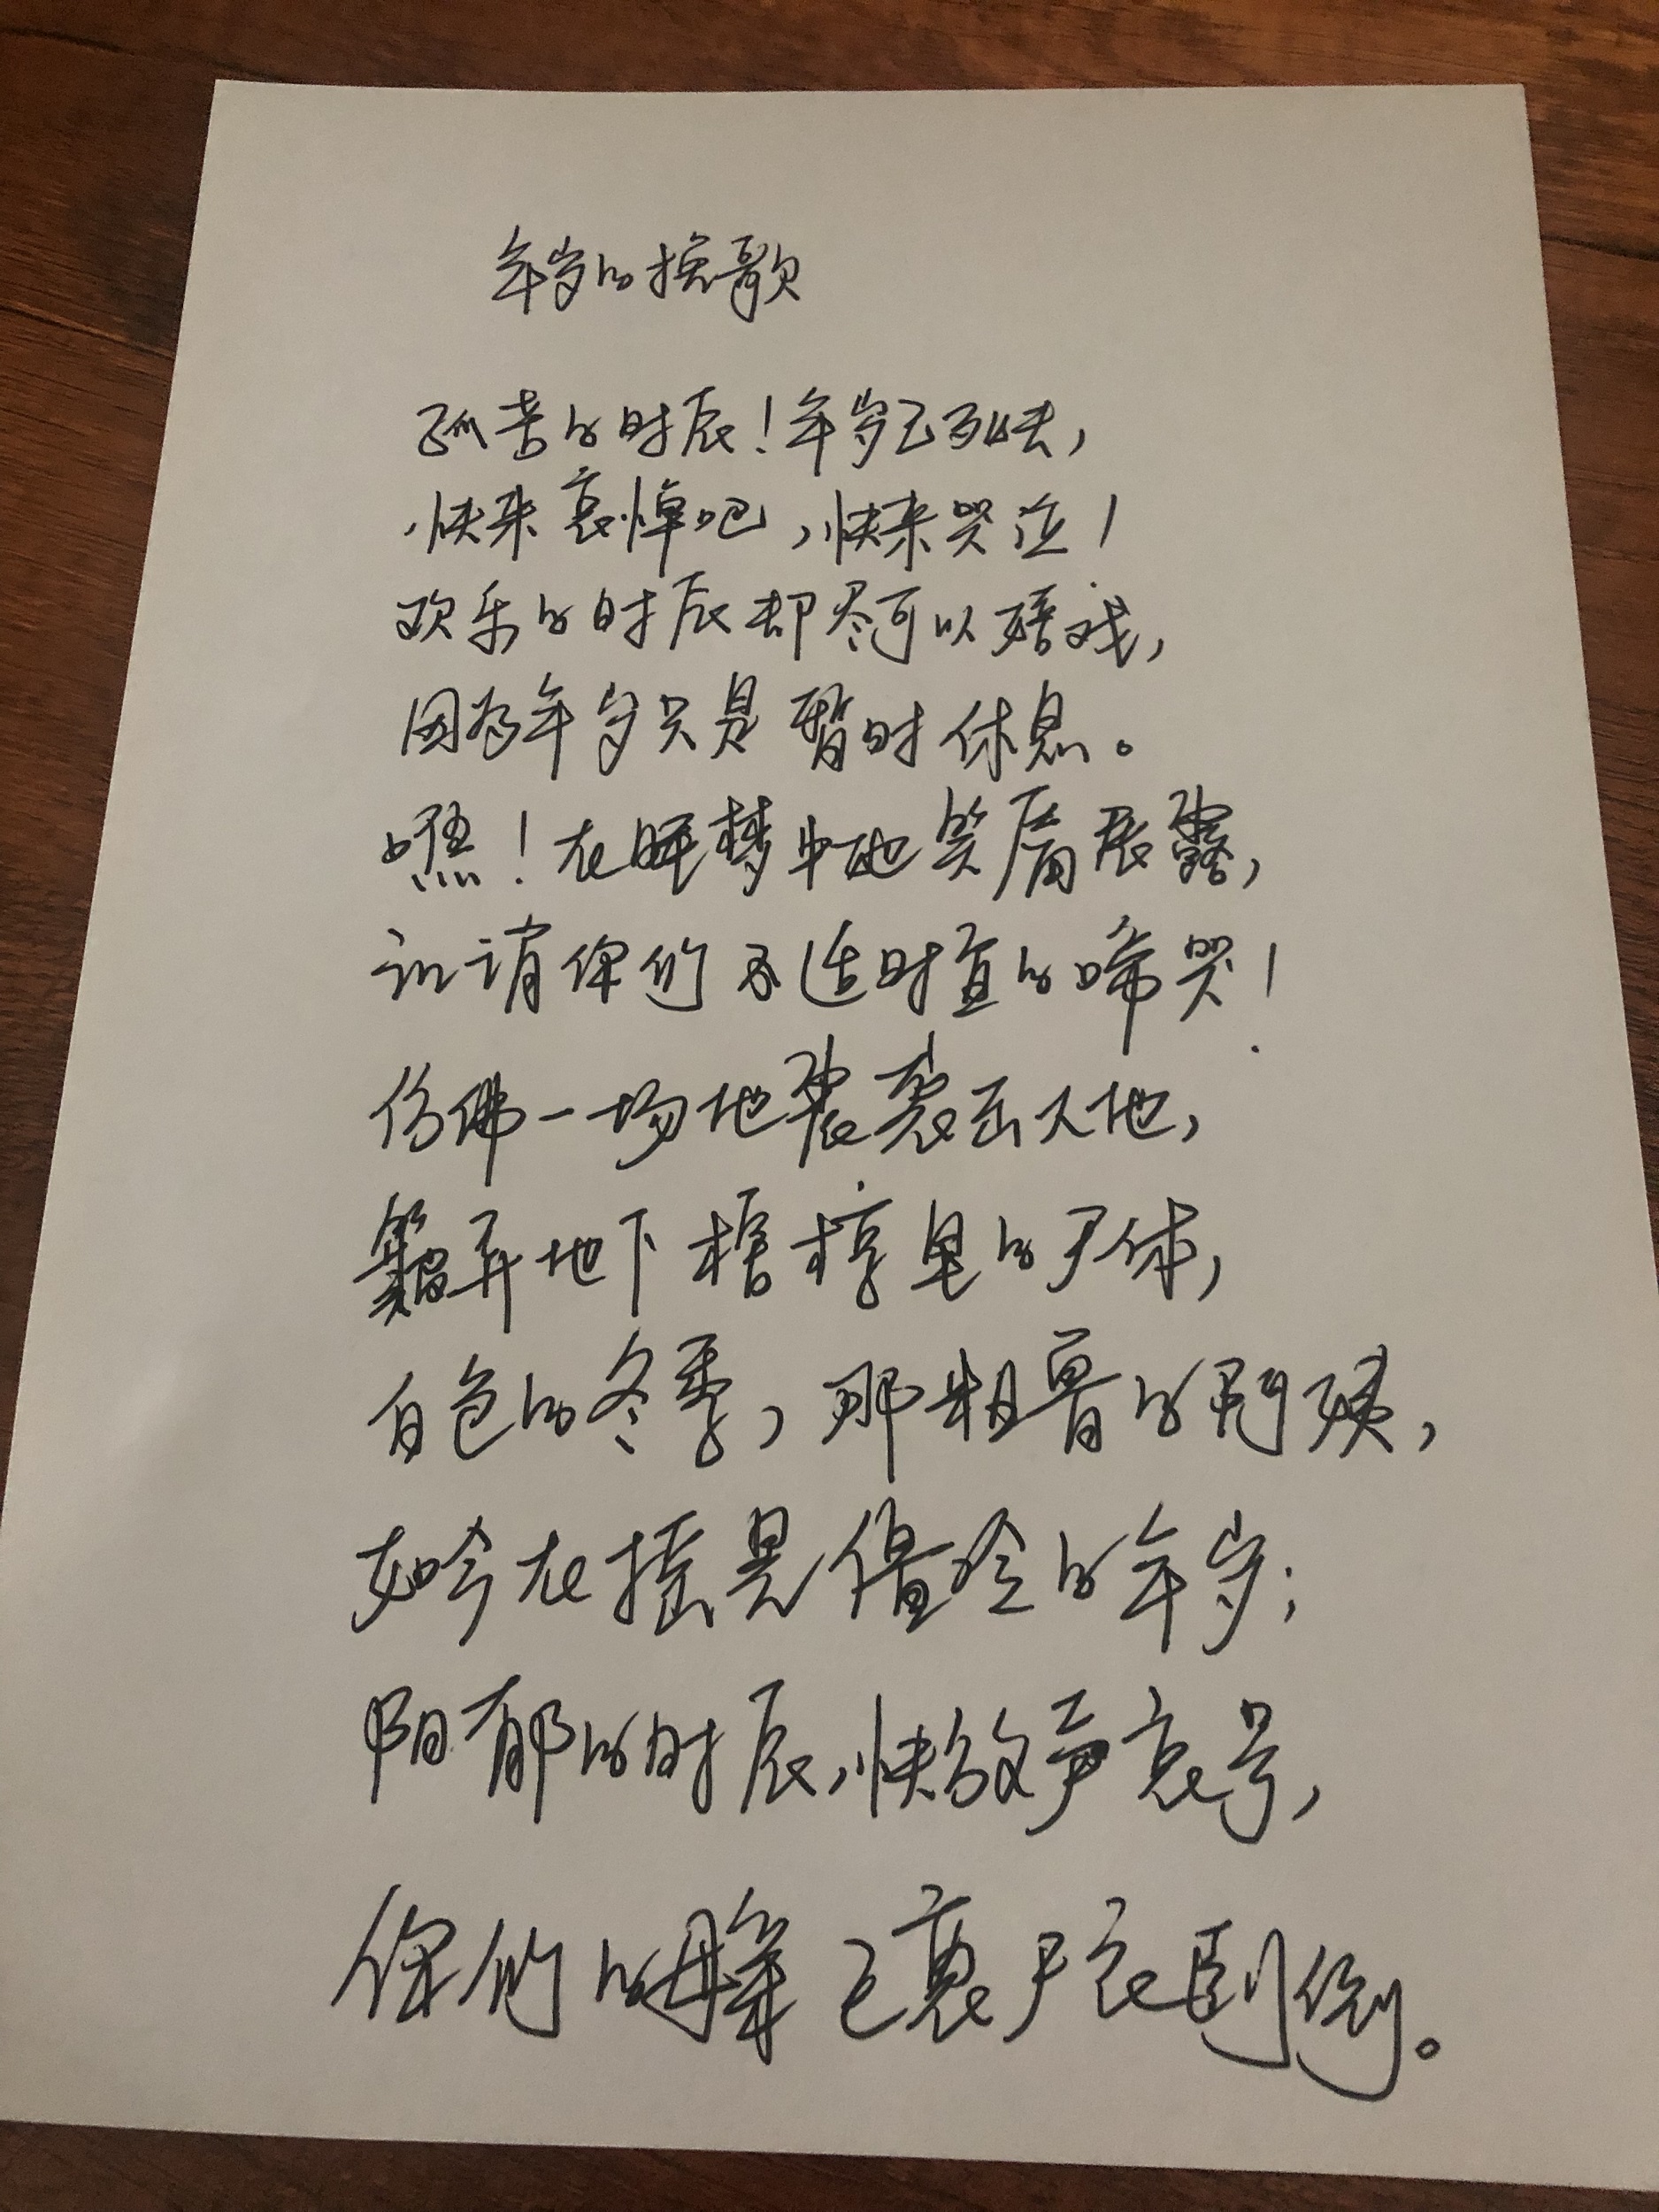 年岁的挽歌
孤苦的时辰！年岁已死去，
快来哀悼吧，快来哭泣！
欢乐的时辰却尽可以嬉戏，
因为年岁只是暂时休息。
瞧！在睡梦中她笑靥展露，
讥诮你们不适时宜的啼哭！
仿佛一场地震袭击大地，
簸弄地下棺椁里的尸体，
白色的冬季，那粗鲁的阿姨，
如今在摇晃僵冷的年岁；
阴郁的时辰，快放声哀号，
你们的母亲已裹尸衣卧倒。